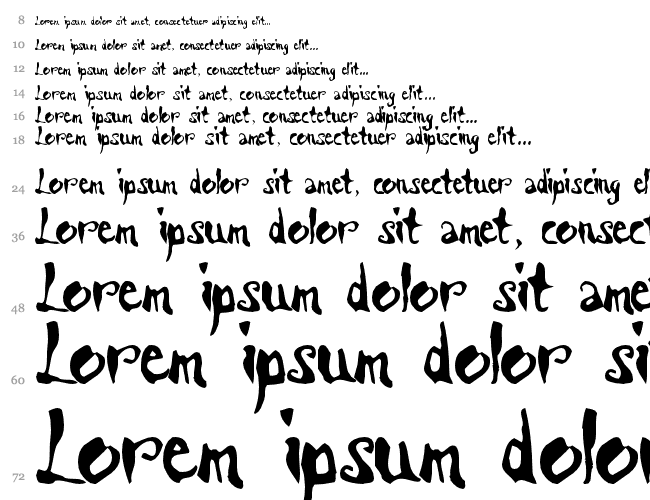 8 Lorem ipsum dolor sit amet, consectetuer adipiscing elit...
10 Lorem ipsum dolor sit amet, consectetuer adipiscing elit...
12 Lorem ipsum dolor sit amet, consectetuer adipiscing elit...
14 Lorem ipsum dolor sit amet, consectetuer adipiscing elit...
16 Lorem ipsum dolor sit amet, consectetuer adipiscing elit...
18 Lorem ipsum dolor sit amet, consectetuer adipiscing elit...
24 Lorem ipsum dolor sit amet, consectetuer adipiscing el
36 Lorem ipsum dolor sit amet, consect
48 Lorem ipsum dolor sit ame
60 Lorem ipsum dolor si
72 Lorem ipsum dolor